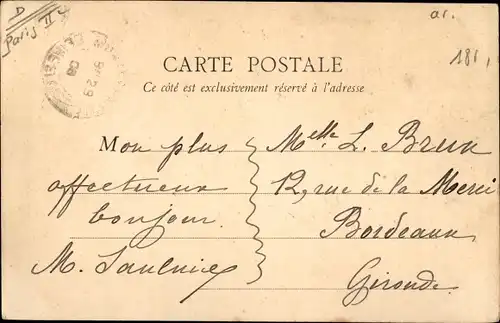 D
Paris II
ar.
181,
CARTE POSTALE
Ce côté est exclusivement réservé à l'adresse
Mon plus
affectueux
bonjour.
M. Saulnier
Melle L. Brun
12, rue de la Merci
Bordeaux.
Gironde.